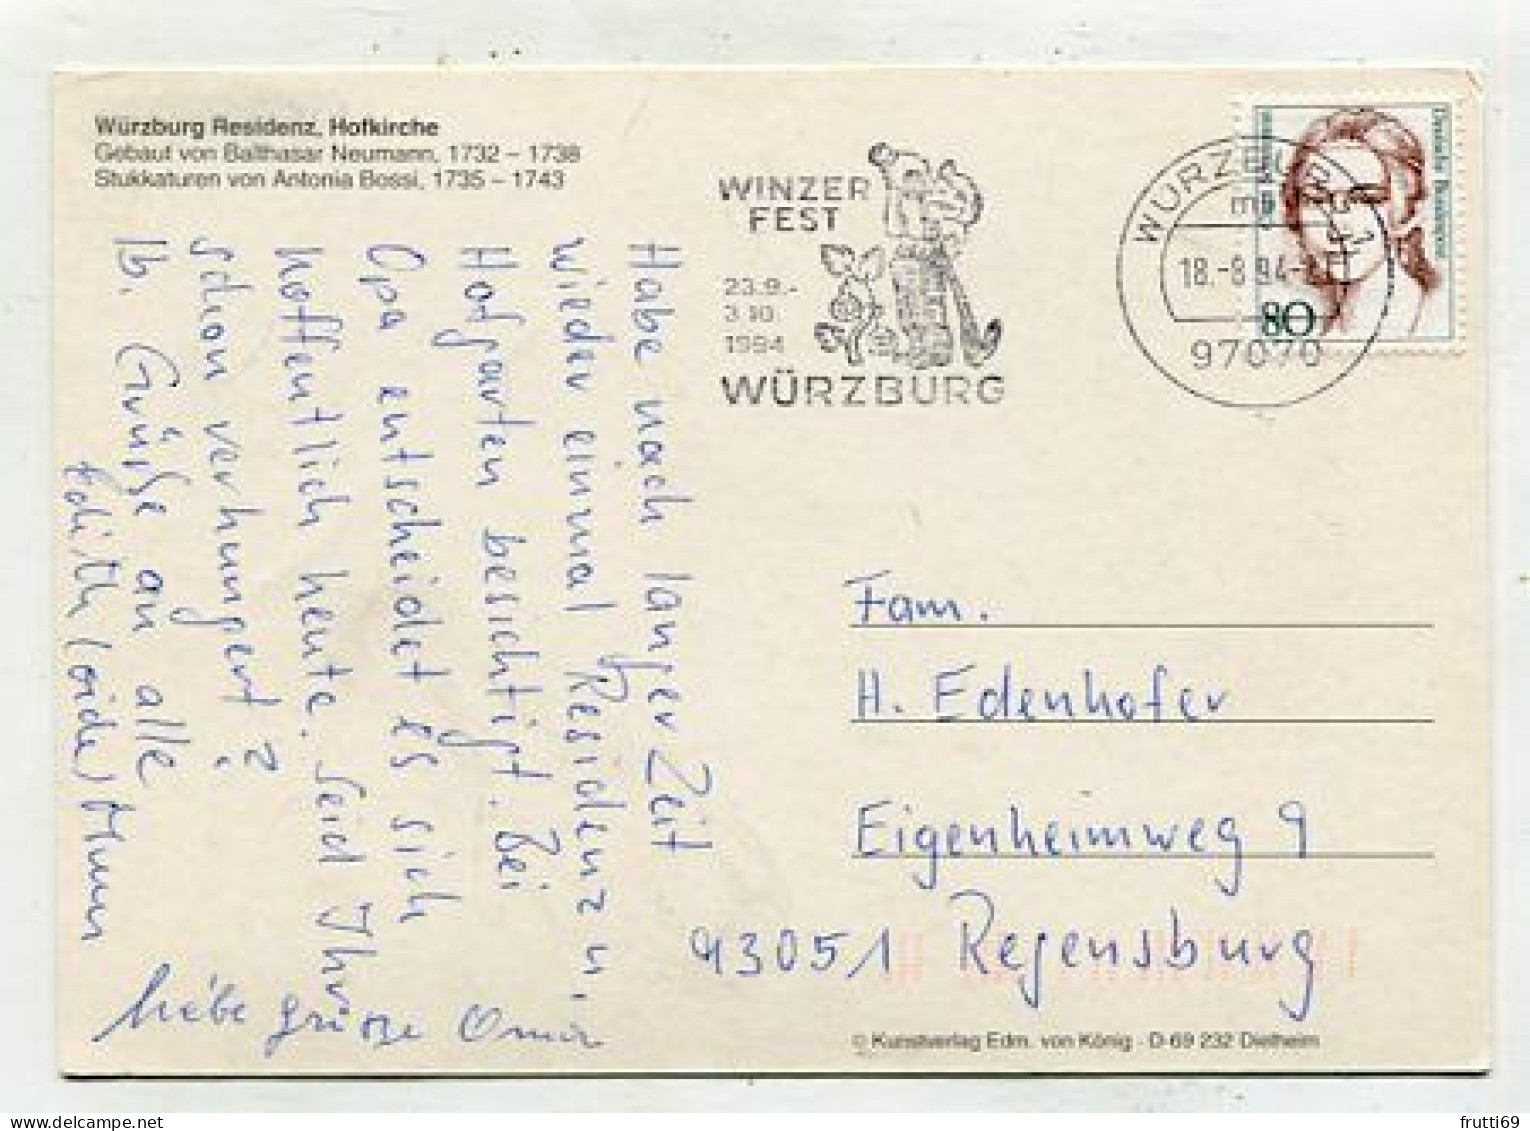 Würzburg Residenz, Hofkirche
Gebaut von Balthasar Neumann, 1732 – 1738
Stukkaturen von Antonia Bossi, 1735 – 1743
WINZER
FEST
23.9.-
3.10.
1994
WÜRZBURG
WÜRZBURG 1
18.-8.94-
97070
Deutsche Bundespost
80
Habe nach langer Zeit
wieder einmal Residenz u.
Hofgarten besichtigt. Bei
Opa entscheidet es sich
hoffentlich heute. Seid Ihr
schon verhungert?
lb. Grüße an alle
Edith
liebe Grüße Oma
Fam.
H. Edenhofer
Eigenheimweg 9
93051 Regensburg
© Kunstverlag Edm. von König · D-69 232 Dielheim
frutti69